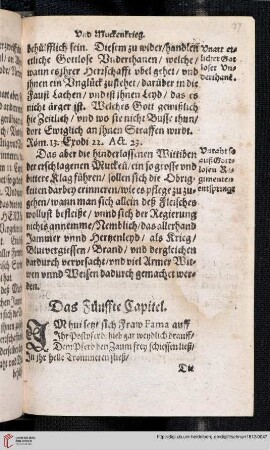 Vnd Muckenkrieg. 77
behülfflich sein. Diesem zu wider / handlen
etliche Gottlose Vnderthanen / welche /
wann es jhrer Herrschafft vbel gehet / vnd
jhnen ein Vnglück zustehet / darüber in die
Faust Lachen / vnd ist jhnen Leyd / das es
nicht ärger ist. Welches Gott gewißlich
hie Zeitlich / vnd wo sie nicht Buß thun /
dort Ewiglich an jhnen Straffen wurdt.
Röm. 13. Exodi 22. Act. 23.
Vnart et-
licher Got
loser Vn-
derthanē.
Das aber die hinderlassenen Wittiben
der erschlagenen Mucken / ein so grosse vnd
bittere Klag führen / sollen sich die Obrig-
keiten darbey erinneren / wie es pflege zu zu-
gehen / wann man sich allein deß Fleisches
vollust befleißt / vnnd sich der Regierung
nichts annemme / Nemblich / das allerhand
Jammer vnnd Hertzenleyd / als Krieg /
Blutvergiessen / Brand / vnd dergleichen
dardurch verursacht / vnd viel Armer Wit-
wen vnnd Weisen dardurch gemachet wer-
den.
Vnraht so
auß Gott-
losen Re-
gimenten
entspringt
Das Fünffte Capitel.
IM hui setzt sich Fraw Fama auff
Ihr Postpferd / hieb gar weydlich drauff /
Dem Pferd den Zaum frey schiessen ließ /
In jhr helle Trommeten stieß /
Die